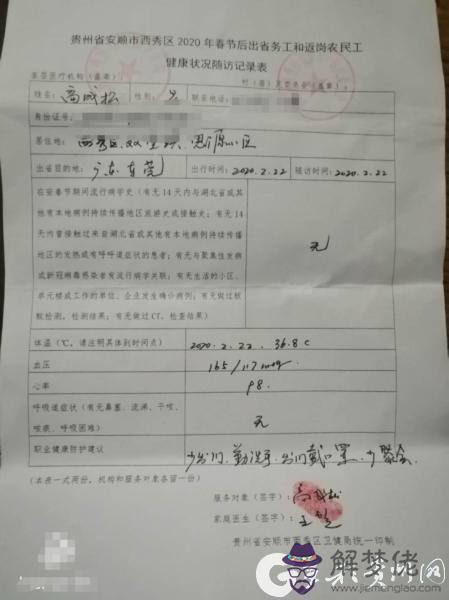 贵州省安顺市西秀区2020年春节后出省务工和返岗农民工
健康状况随访记录表
基层医疗机构(盖章): 村(居)
姓名: 高成松 性别: 联系电话:
身份证号:
居住地: 西秀区
出省目的地: 广东东莞 出行时间: 2020.2.22 随访时间: 2020.2.22
在安春节期间流行病学史(有无14天内与湖北省或其
他有本地病例持续传播地区旅游史或接触史; 有无14
天内曾接触过来自湖北省或其他有本地病例持续传播
地区的发热或有呼吸道症状的患者; 有无与聚集性发病
或新冠病毒感染者有流行病学关联; 有无生活的小区、
单元楼或工作的单位、企业发生确诊病例; 有无做过核
酸检测, 检测结果; 有无做过CT, 检查结果)
无
体温(℃, 请注明具体到时间点) 2020.2.22. 36.8 c
血压 165/117
心率 98.
呼吸道症状(有无鼻塞、流涕、干咳、
咳痰、呼吸困难) 无
职业健康防护建议 少出门、勤洗手、出门戴口罩、少聚会.
(本表一式两份, 机构和服务对象各留一份)
服务对象(签字): 高成松
家庭医生(签字): 王
贵州省安顺市西秀区卫健局统一印制
解梦佬
www.jiemenglao.com